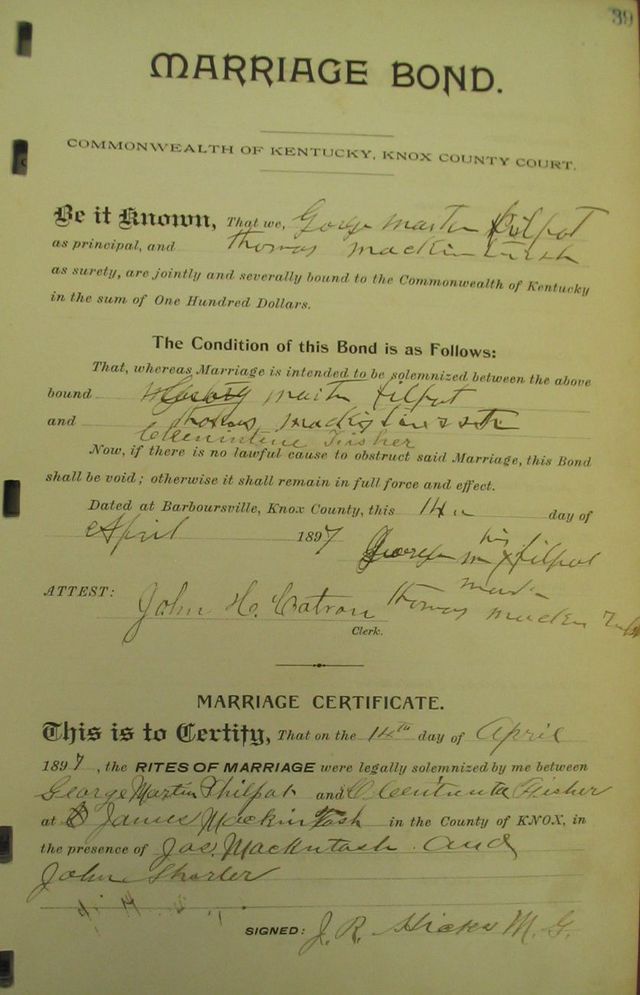 39
MARRIAGE BOND.
COMMONWEALTH OF KENTUCKY, KNOX COUNTY COURT.
Be it Known, That we, Gorge Martin filpot
as principal, and thomas mackintush
as surety, are jointly and severally bound to the Commonwealth of Kentucky
in the sum of One Hundred Dollars.
The Condition of this Bond is as Follows:
That, whereas Marriage is intended to be solemnized between the above
bound martin filpot
and thomas
Clemintine Fisher
Now, if there is no lawful cause to obstruct said Marriage, this Bond
shall be void; otherwise it shall remain in full force and effect.
Dated at Barboursville, Knox County, this 14 day of
April 1897
his
George m X filpot
mark
ATTEST: John H. Catron thomas
Clerk.
MARRIAGE CERTIFICATE.
This is to Certify, That on the 14th day of April
1897, the RITES OF MARRIAGE were legally solemnized by me between
George Martin Philpot and Fisher
at James Mackintash in the County of KNOX, in
the presence of Jas. Mackintash and
John
SIGNED: J. R. Hicks M. G.